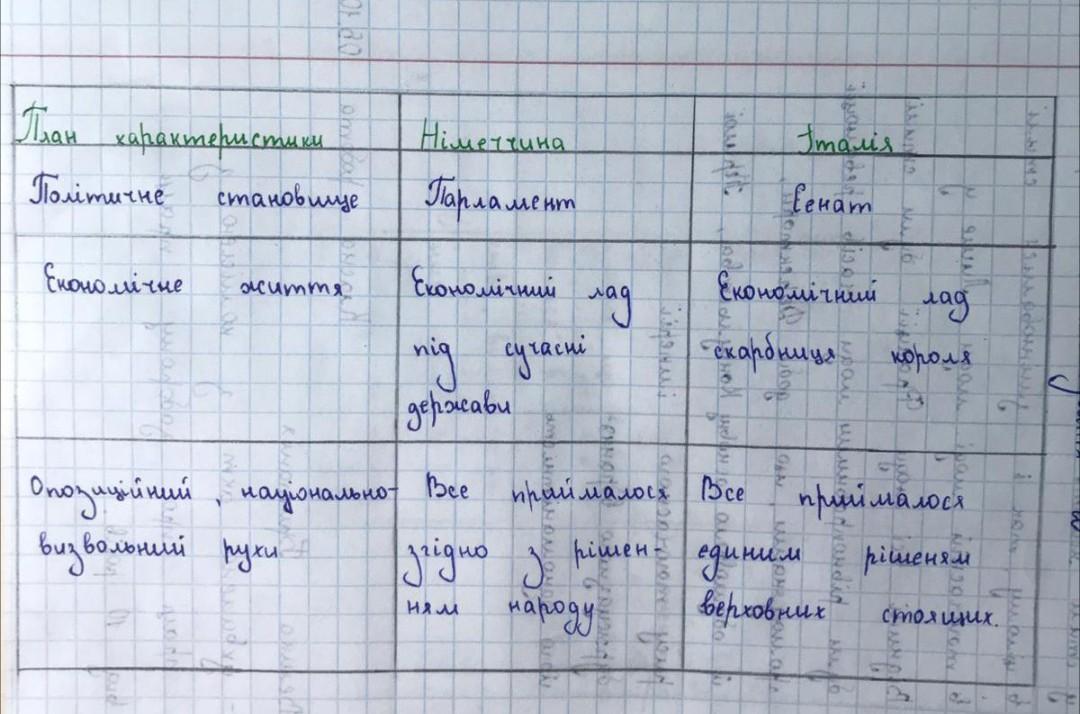 План характеристики
Німеччина
Італія
Політичне становище
Парламент
Сенат
Економічне життя
Економічний лад
під сучасні
держави
Економічний лад
скарбниця короля
Опозиційний , національно-
визвольний рухи
Все приймалося
згідно з рішен-
ням народу
Все приймалося
единим рішеням
верховних стоящих.